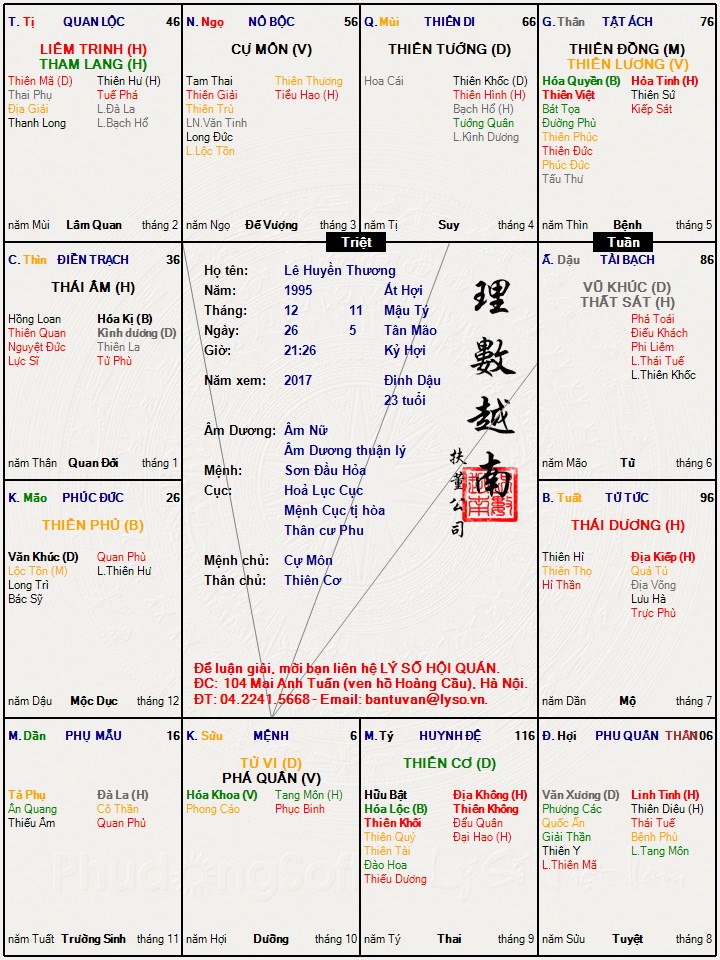 T. Tị QUAN LỘC 46
LIÊM TRINH (H)
THAM LANG (H)
Thiên Mã (D) Thiên Hư (H)
Thai Phụ Tuế Phá
Địa Giải L.Đà La
Thanh Long L.Bạch Hổ
năm Mùi Lâm Quan tháng 2
N. Ngọ NÔ BỘC 56
CỰ MÔN (V)
Tam Thai Thiên Thương
Thiên Giải Tiểu Hao (H)
Thiên Trù
LN.Văn Tinh
Long Đức
L.Lộc Tồn
năm Ngọ Đế Vượng tháng 3
Q. Mùi THIÊN DI 66
THIÊN TƯỚNG (D)
Hoa Cái Thiên Khốc (D)
Thiên Hình (H)
Bạch Hổ (H)
Tướng Quân
L.Kình Dương
năm Tị Suy tháng 4
G. Thân TẬT ÁCH 76
THIÊN ĐỒNG (M)
THIÊN LƯƠNG (V)
Hóa Quyền (B) Hỏa Tinh (H)
Thiên Việt Thiên Sứ
Bát Tọa Kiếp Sát
Đường Phù
Thiên Phúc
Thiên Đức
Phúc Đức
Tấu Thư
năm Thìn Bệnh tháng 5
Triệt
Tuần
C. Thìn ĐIỀN TRẠCH 36
THÁI ÂM (H)
Hồng Loan Hóa Kị (B)
Thiên Quan Kình dương (D)
Nguyệt Đức Thiên La
Lực Sĩ Tử Phù
năm Thân Quan Đới tháng 1
Họ tên: Lê Huyền Thương
Năm: 1995 Ất Hợi
Tháng: 12 11 Mậu Tý
Ngày: 26 5 Tân Mão
Giờ: 21:26 Kỷ Hợi
Năm xem: 2017 Đinh Dậu
23 tuổi
Âm Dương: Âm Nữ
Âm Dương thuận lý
Mệnh: Sơn Đầu Hỏa
Cục: Hoả Lục Cục
Mệnh Cục tị hòa
Thân cư Phu
Mệnh chủ: Cự Môn
Thân chủ: Thiên Cơ
理數越南
扶董公司
Để luận giải, mời bạn liên hệ LÝ SỐ HỘI QUÁN.
ĐC: 104 Mai Anh Tuấn (ven hồ Hoàng Cầu), Hà Nội.
ĐT: 04.2241.5668 - Email: bantuvan@lyso.vn.
Ấ. Dậu TÀI BẠCH 86
VŨ KHÚC (D)
THẤT SÁT (H)
Phá Toái
Điếu Khách
Phi Liêm
L.Thái Tuế
L.Thiên Khốc
năm Mão Tử tháng 6
K. Mão PHÚC ĐỨC 26
THIÊN PHỦ (B)
Văn Khúc (D) Quan Phù
Lộc Tồn (M) L.Thiên Hư
Long Trì
Bác Sỹ
năm Dậu Mộc Dục tháng 12
B. Tuất TỬ TỨC 96
THÁI DƯƠNG (H)
Thiên Hỉ Địa Kiếp (H)
Thiên Thọ Quả Tú
Hỉ Thần Địa Võng
Lưu Hà
Trực Phù
năm Dần Mộ tháng 7
M. Dần PHỤ MẪU 16
Tả Phụ Đà La (H)
Ân Quang Cô Thần
Thiếu Âm Quan Phủ
năm Tuất Trường Sinh tháng 11
K. Sửu MỆNH 6
TỬ VI (D)
PHÁ QUÂN (V)
Hóa Khoa (V) Tang Môn (H)
Phong Cáo Phục Binh
năm Hợi Dưỡng tháng 10
M. Tý HUYNH ĐỆ 116
THIÊN CƠ (D)
Hữu Bật Địa Không (H)
Hóa Lộc (B) Thiên Không
Thiên Khôi Đẩu Quân
Thiên Quý Đại Hao (H)
Thiên Tài
Đào Hoa
Thiếu Dương
năm Tý Thai tháng 9
Đ. Hợi PHU QUÂN THÂN 106
Văn Xương (D) Linh Tinh (H)
Phượng Các Thiên Diêu (H)
Quốc Ấn Thái Tuế
Giải Thần Bệnh Phù
Thiên Y L.Tang Môn
L.Thiên Mã
năm Sửu Tuyệt tháng 8